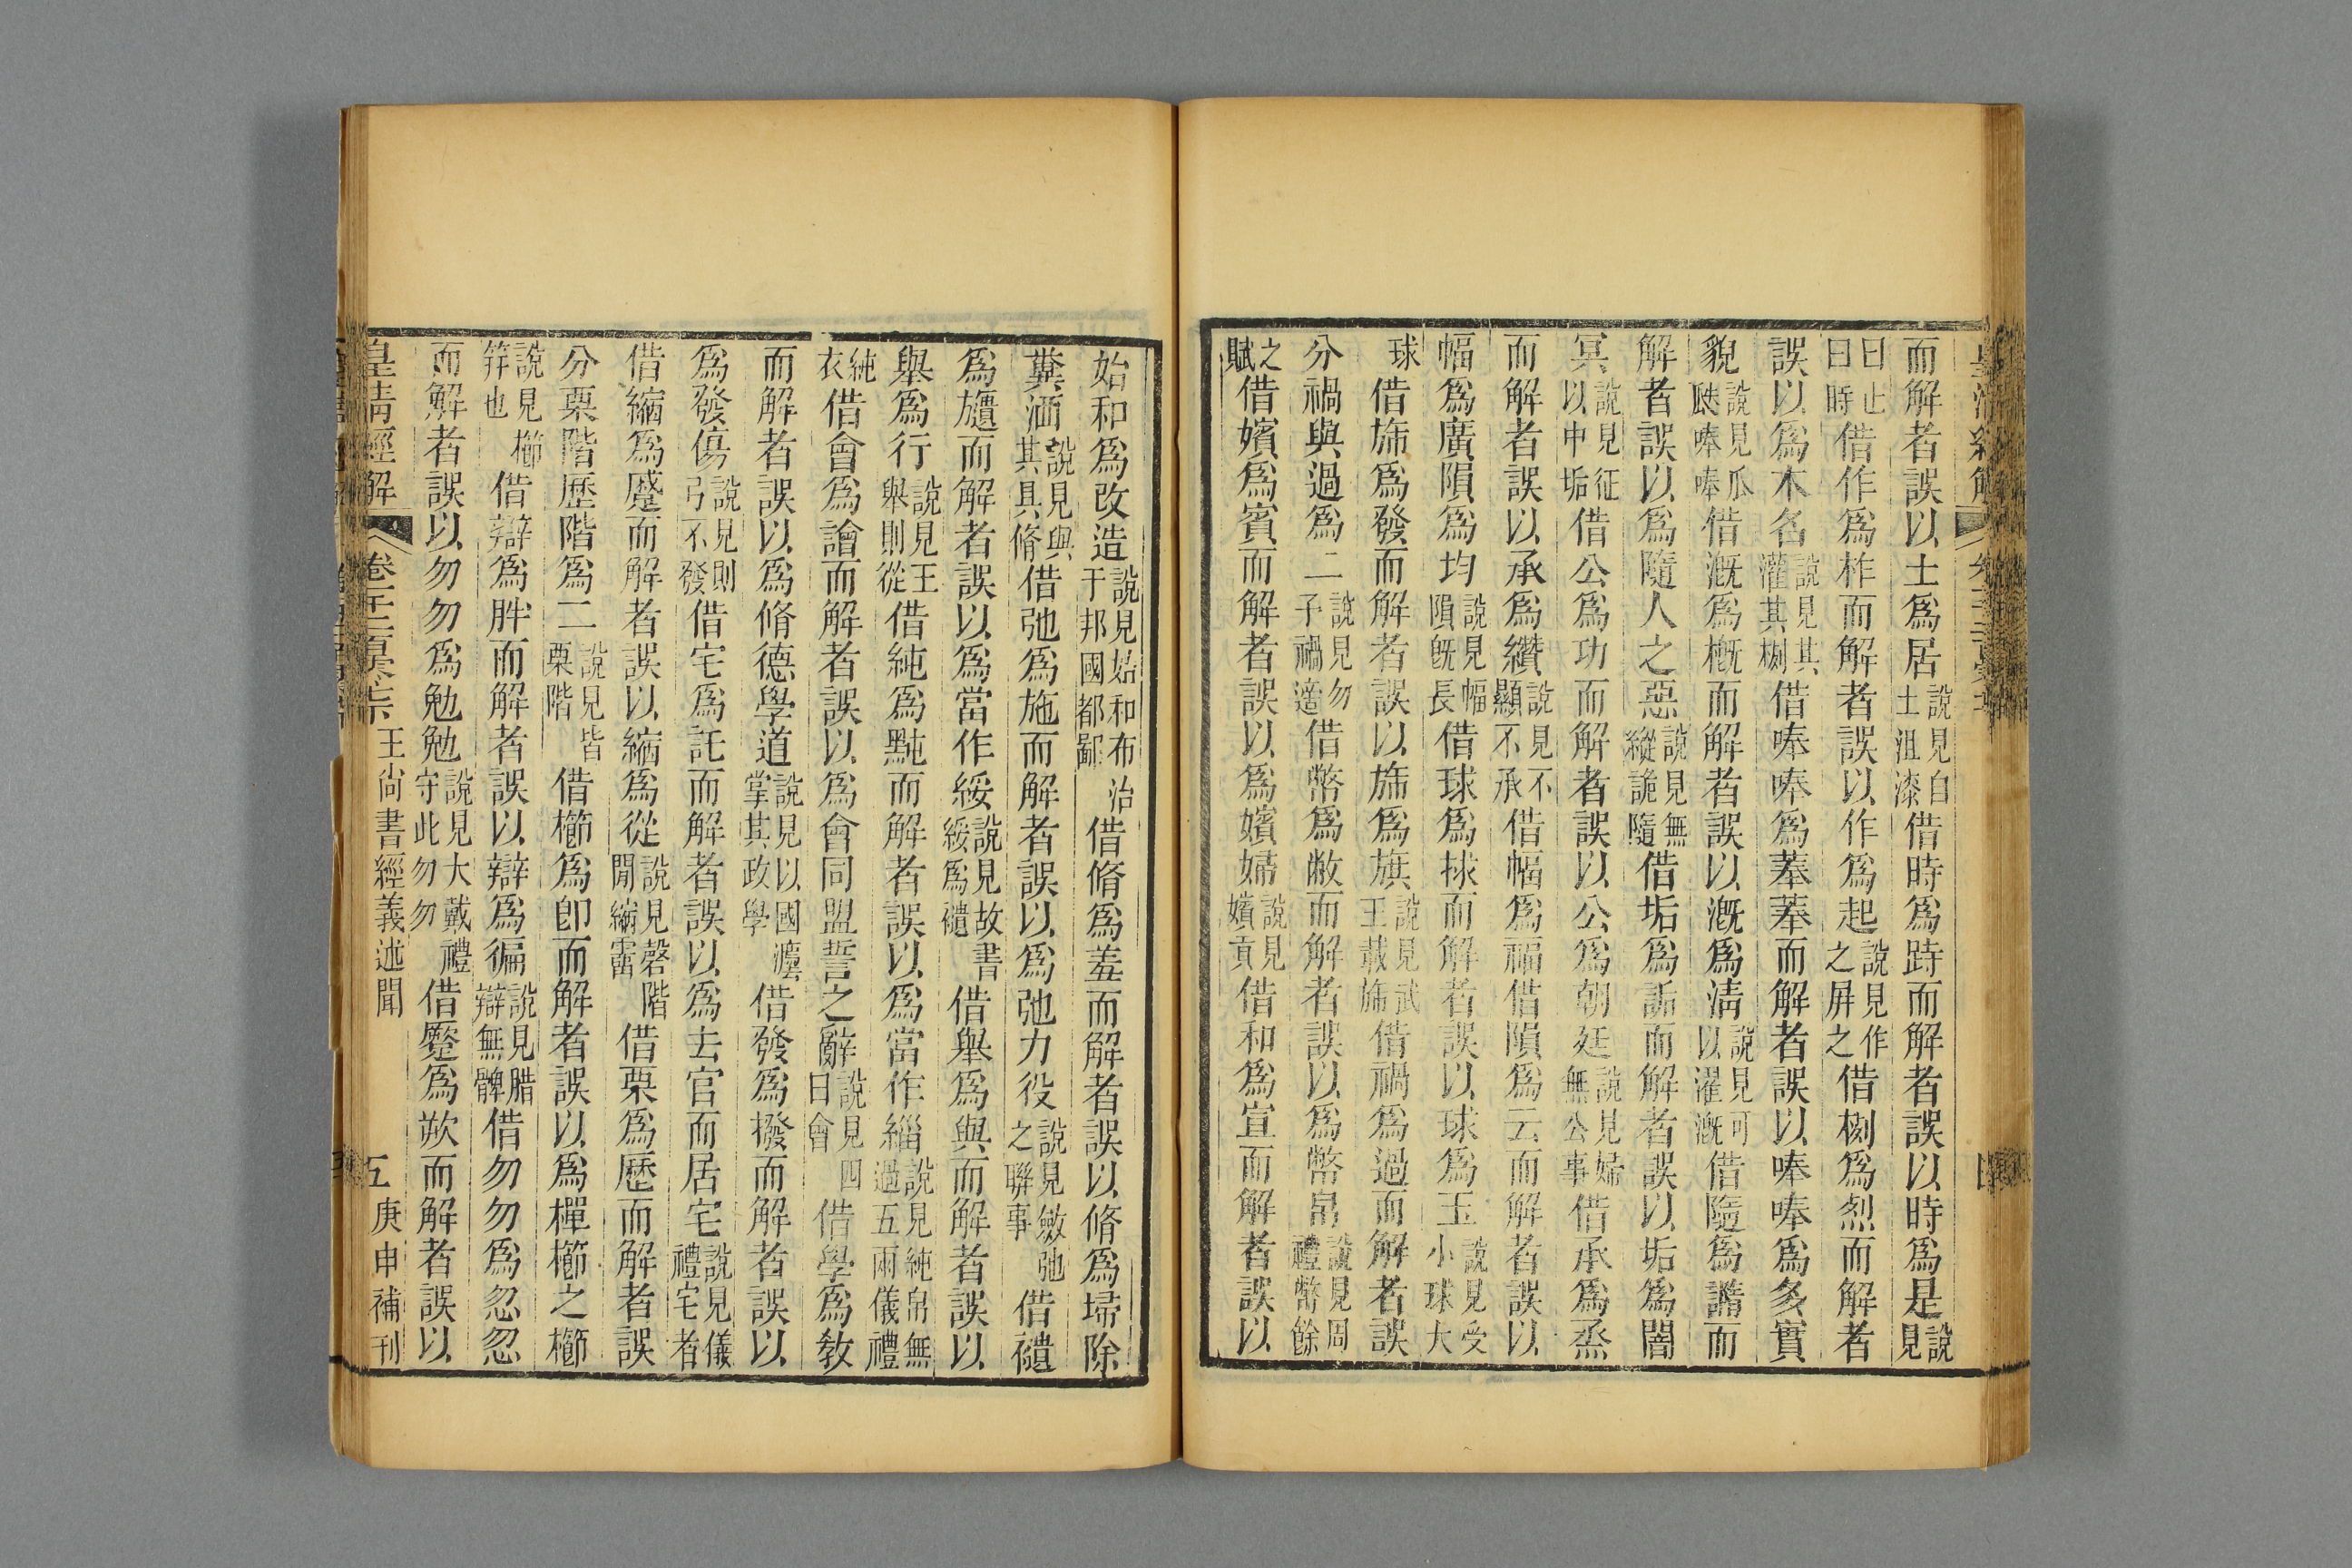 而解者誤以土爲居說見自土沮漆借時爲跱而解者誤以時爲是說見
曰止曰時借作爲柞而解者誤以作爲起說見作之屏之借栵爲烈而解者
誤以爲木名說見其灌其栵借唪唪爲菶菶而解者誤以唪唪爲多實
貌說見瓜瓞唪唪借漑爲概而解者誤以漑爲清說見可以濯漑借隨爲譎而
解者誤以爲隨人之惡說見無縱詭隨借垢爲詬而解者誤以垢爲闇
冥說見征以中垢借公爲功而解者誤以公爲朝廷說見婦無公事借承爲烝
而解者誤以承爲纘說見不顯不承借幅爲福借隕爲云而解者誤以
幅爲廣隕爲均說見幅隕旣長借球爲捄而解者誤以球爲玉說見受小球大
球借旆爲發而解者誤以旆爲旗說見武王載旆借禍爲過而解者誤
分禍與過爲二說見勿予禍適借幣爲敝而解者誤以爲幣帛說見周禮幣餘
之賦借嬪爲賓而解者誤以爲嬪婦說見嬪貢借和爲宣而解者誤以
始和爲改造說見始和布治于邦國都鄙借脩爲羞而解者誤以脩爲埽除
糞洒說見與其具脩借弛爲施而解者誤以爲弛力役說見斂弛之聯事借䄠
爲㫋而解者誤以爲當作綏說見故書綏爲䄠借舉爲與而解者誤以
舉爲行說見王舉則從借純爲黗而解者誤以爲當作緇說見純帛無過五兩儀禮
純衣借會爲譮而解者誤以爲會同盟誓之辭說見四曰會借學爲教
而解者誤以爲脩德學道說見以國灋掌其政學借發爲撥而解者誤以
爲發傷說見則弓不發借宅爲託而解者誤以爲去官而居宅說見儀禮宅者
借縮爲蹙而解者誤以縮爲從說見磬階閒縮霤借栗爲歷而解者誤
分栗階歷階爲二說見皆栗階借櫛爲卽而解者誤以爲樿櫛之櫛
說見櫛笄也借辯爲胖而解者誤以辯爲徧說見腊辯無髀借勿勿爲忽忽
而解者誤以勿勿爲勉勉說見大戴禮守此勿勿借蹷爲欮而解者誤以
皇清經解 王尙書經義述聞 五 庚申補刊